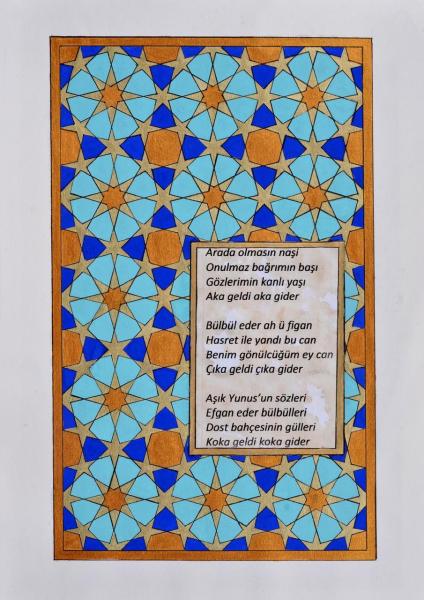 Arada olmasın naşi
Onulmaz bağrımın başı
Gözlerimin kanlı yaşı
Aka geldi aka gider
Bülbül eder ah ü figan
Hasret ile yandı bu can
Benim gönülcüğüm ey can
Çıka geldi çıka gider
Aşık Yunus'un sözleri
Efgan eder bülbülleri
Dost bahçesinin gülleri
Koka geldi koka gider